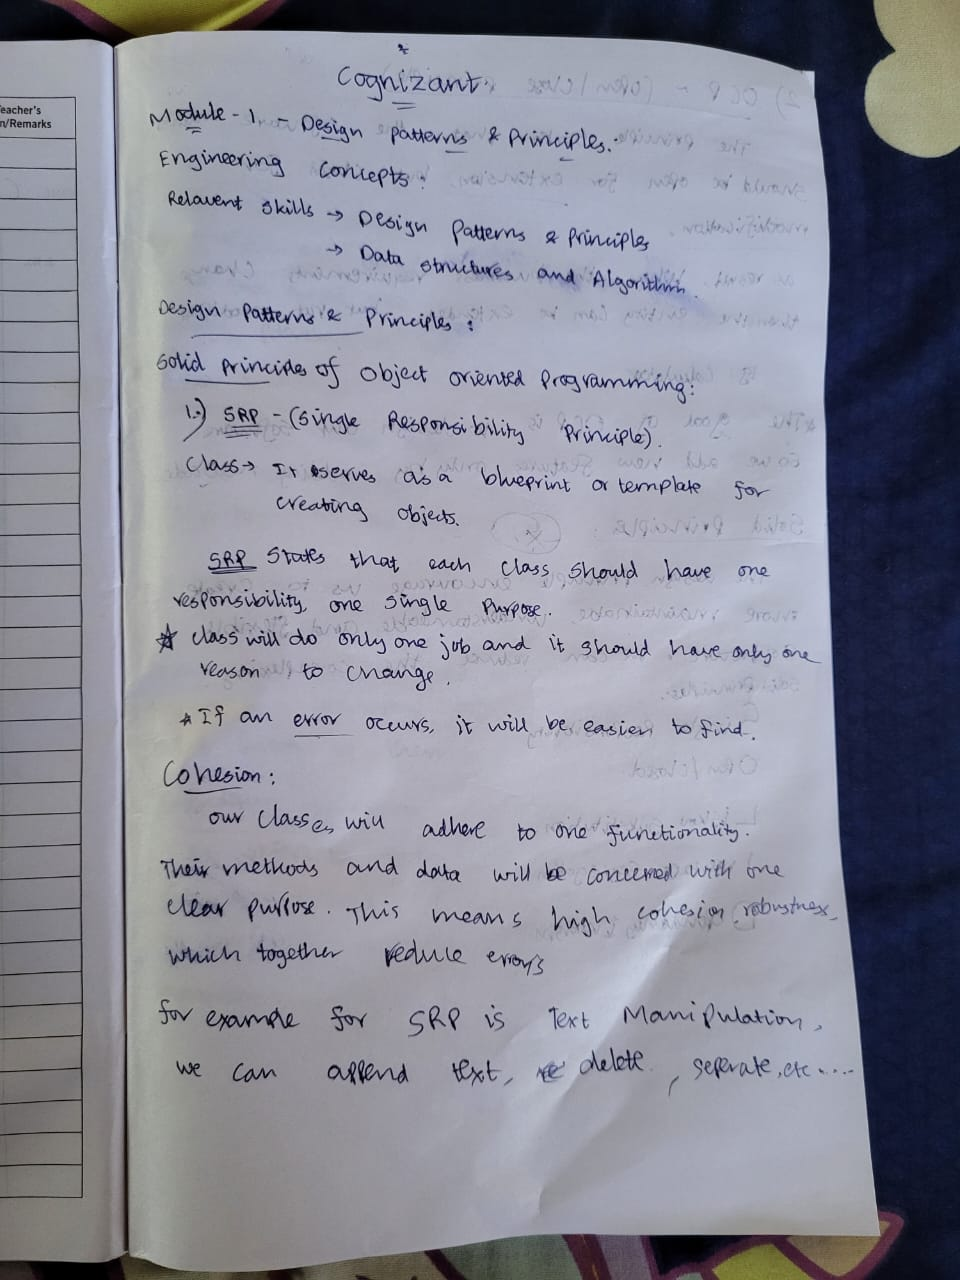 eacher's
n/Remarks
Cognizant.
Module - 1. - Design patterns & Principles.
Engineering Concepts:
Relavent skills → Design Patterns & Principles
→ Data structures and Algorithm.
Design Patterns & Principles:
Solid principles of object oriented programming:
1.) SRP - (Single Responsibility Principle).
Class → It serves as a blueprint or template for
creating objects.
SRP States that each class should have one
responsibility, one single purpose.
☆ class will do only one job and it should have only one
reason to change.
* If an error occurs, it will be easier to find.
Cohesion:
our Classes will adhere to one functionality.
Their methods and data will be concerned with one
clear purpose. This means high cohesion, robustness,
which together reduce errors
for example for SRP is Text Manipulation,
we can append text, delete, seperate, etc.....